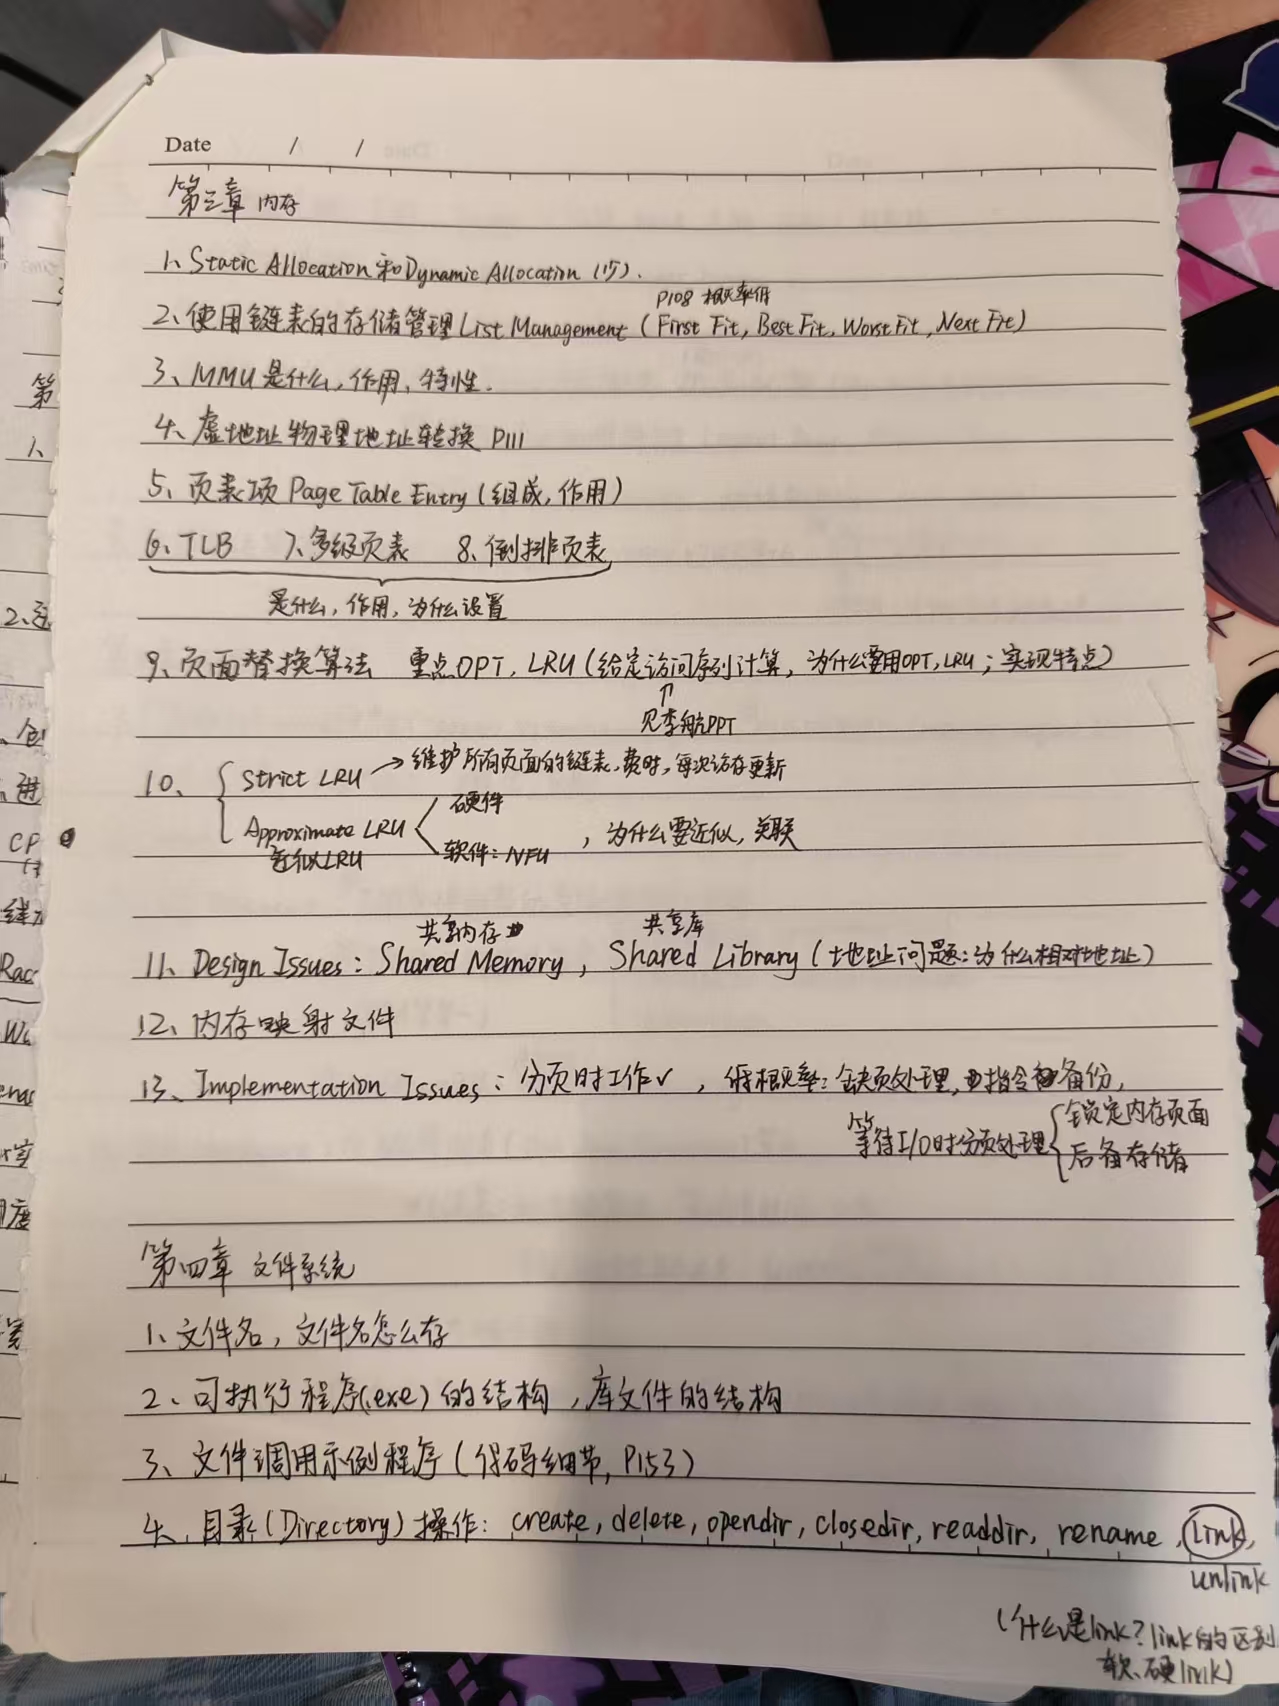 Date / /
第三章 内存
1、Static Allocation和Dynamic Allocation (巧).
P108 概率低
2、使用链表的存储管理 List Management (First Fit, Best Fit, Worst Fit, Next Fit)
3、MMU是什么,作用、特性.
4、虚地址物理地址转换 P111
5、页表项 Page Table Entry (组成,作用)
6、TLB 7、多级页表 8、倒排页表
是什么,作用,为什么设置
9、页面替换算法 重点OPT, LRU (给定访问序列计算,为什么要用OPT, LRU;实现特点)
↑
见李航PPT
10、 Strict LRU → 维护所有页面的链表,费时,每次访存更新
硬件
Approximate LRU
近似LRU 软件:NFU ,为什么要近似,关联
共享内存 共享库
11、Design Issues: Shared Memory, Shared Library (地址问题:为什么相对地址)
12、内存映射文件
13、Implementation Issues:分页时工作√ ,低概率:缺页处理,指令备份,
等待I/O时分页处理 锁定内存页面
后备存储
第四章 文件系统
1、文件名,文件名怎么存
2、可执行程序(.exe)的结构,库文件的结构
3、文件调用示例程序(代码细节, P153)
4、目录(Directory)操作: create, delete, opendir, closedir, readdir, rename, link,
unlink
(什么是link?link的区别
软、硬link)
第
1、
进
CP
Rac